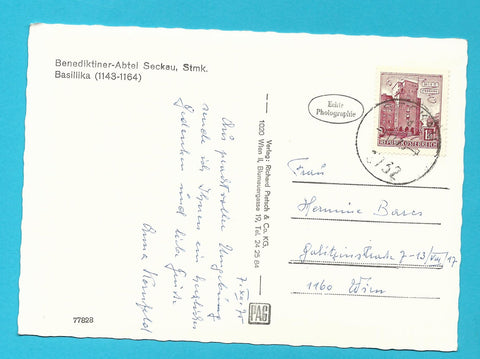 Benediktiner-Abtei Seckau, Stmk.
Basilika (1143-1164)
7. XII. 75
Aus prachtvoller Umgebung
sende ich Ihnen ein herzliches
Gedenken und liebe Grüße
Anna
77828
Verlag: Richard Pietsch & Co. KG.
1020 Wien II, Blumauergasse 19, Tel. 24 25 84
PAG
Echte
Photographie
REPUBLIK ÖSTERREICH
8732
Frau
Hermine Bares
Galitzinstraße 7-13/VII/17
1160 Wien